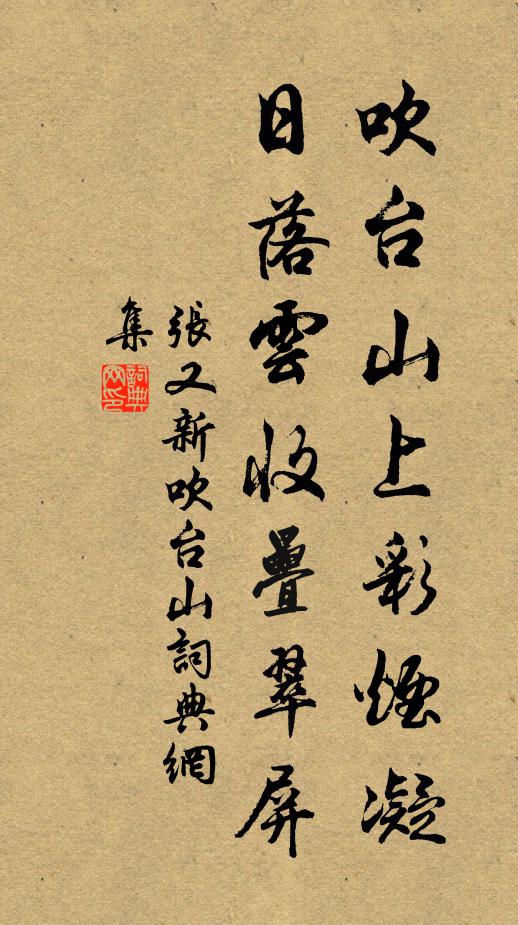 吹台山上彩煙凝
日落雲收疊翠屏
張又新吹台山詞典網
集
詞典
网印